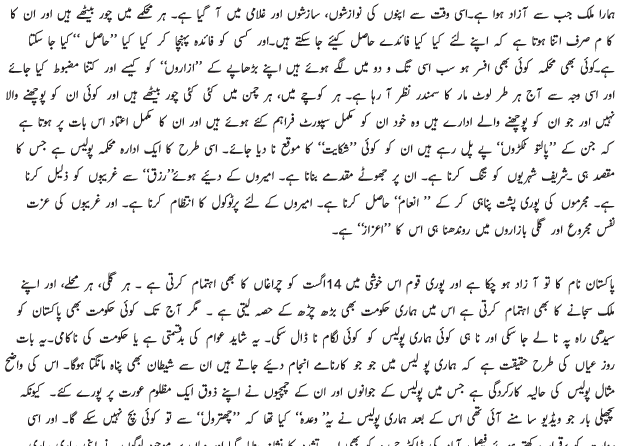 ہمارا ملک جب سے آزاد ہوا ہے۔اسی وقت سے اپنوں کی نوازشوں، سازشوں اور غلامی میں آ گیا ہے۔ ہر محکمے میں چور بیٹھے ہیں اور ان کا
کا م صرف اتنا ہوتا ہے کہ اپنے لئے کیا کیا فائدے حاصل کیئے جاسکتے ہیں۔اور کسی کو فائدہ پہنچا کر کیا کیا ’’حاصل‘‘کیا جا سکتا
ہے۔کوئی بھی محکمہ کوئی بھی افسر ہو سب اسی تگ و دو میں لگے ہوئے ہیں اپنے بڑھاپے کے ’’ازاروں‘‘ کو کیسے اور کتنا مضبوط کیا جائے
اور اسی وجہ سے آج ہر طر لوٹ مار کا سمندر نظر آ رہا ہے۔ ہر کوچے میں، ہر چمن میں کئی کئی چور بیٹھے ہیں اور کوئی ان کو پوچھنے والا
نہیں اور جو ان کو پوچھنے والے ادارے ہیں وہ خود ان کو مکمل سپورٹ فراہم کئے ہوئے ہیں اور ان کا مکمل اعتماد اس بات پر ہوتا ہے
کہ جن کے ’’پالتو ٹکڑوں‘‘ پے پل رہے ہیں ان کو کوئی ’’شکایت‘‘ کا موقع نا دیا جائے۔ اسی طرح کا ایک ادارہ محکمہ پولیس ہے جس کا
مقصد ہی ۔شریف شہریوں کو تنگ کرنا ہے۔ ان پر جھوٹے مقدمے بنانا ہے۔ امیروں کے دیئے ہوئے’’رزق‘‘ سے غریبوں کو ذلیل کرنا
ہے۔ مجرموں کی پوری پشت پناہی کر کے ’’ انعام‘‘ حاصل کرنا ہے۔ امیروں کے لئے پرٹوکول کا انتظام کرنا ہے۔ اور غریبوں کی عزت
نفس مجروع اور گلی بازاروں میں روندھنا ہی اس کا ’’اعزاز‘‘ ہے۔
پاکستان نام کا تو آزاد ہو چکا ہے اور پوری قوم اس خوشی میں 14اگست کو چراغاں کا بھی اہتمام کرتی ہے ۔ ہر گلی، ہر محلے، اور اپنے
ملک سجانے کا بھی اہتمام کرتی ہے اس میں ہماری حکومت بھی بڑھ چڑھ کے حصہ لیتی ہے ۔ مگر آج تک کوئی حکومت بھی پاکستان کو
سیدھی راہ پہ نا لے جا سکی اور نا ہی کوئی ہماری پولیس کو کوئی لگام نا ڈال سکی۔ یہ شاید عوام کی بدقسمتی ہے یا حکومت کی ناکامی۔یہ بات
روز عیاں کی طرح حقیقت ہے کہ ہماری پو لیس میں جو جو کارنامے انجام دیئے جاتے ہیں ان سے شیطان بھی پناہ مانگتا ہوگا۔ اس کی واضح
مثال پولیس کی حالیہ کارکردگی ہے جس میں پولیس کے جوانوں اور ان کے چمچوں نے اپنے ذوق ایک مظلوم عورت پر پورے کئے۔ کیونکہ
پچھلی بار جو ویڈیو سا منے آئی تھی اس کے بعد ہماری پولیس نے یہ’’وعدہ‘‘ کیا تھا کہ ’’چھترول‘‘ سے تو کوئی بچ نہیں سکے گا۔ اور اسی